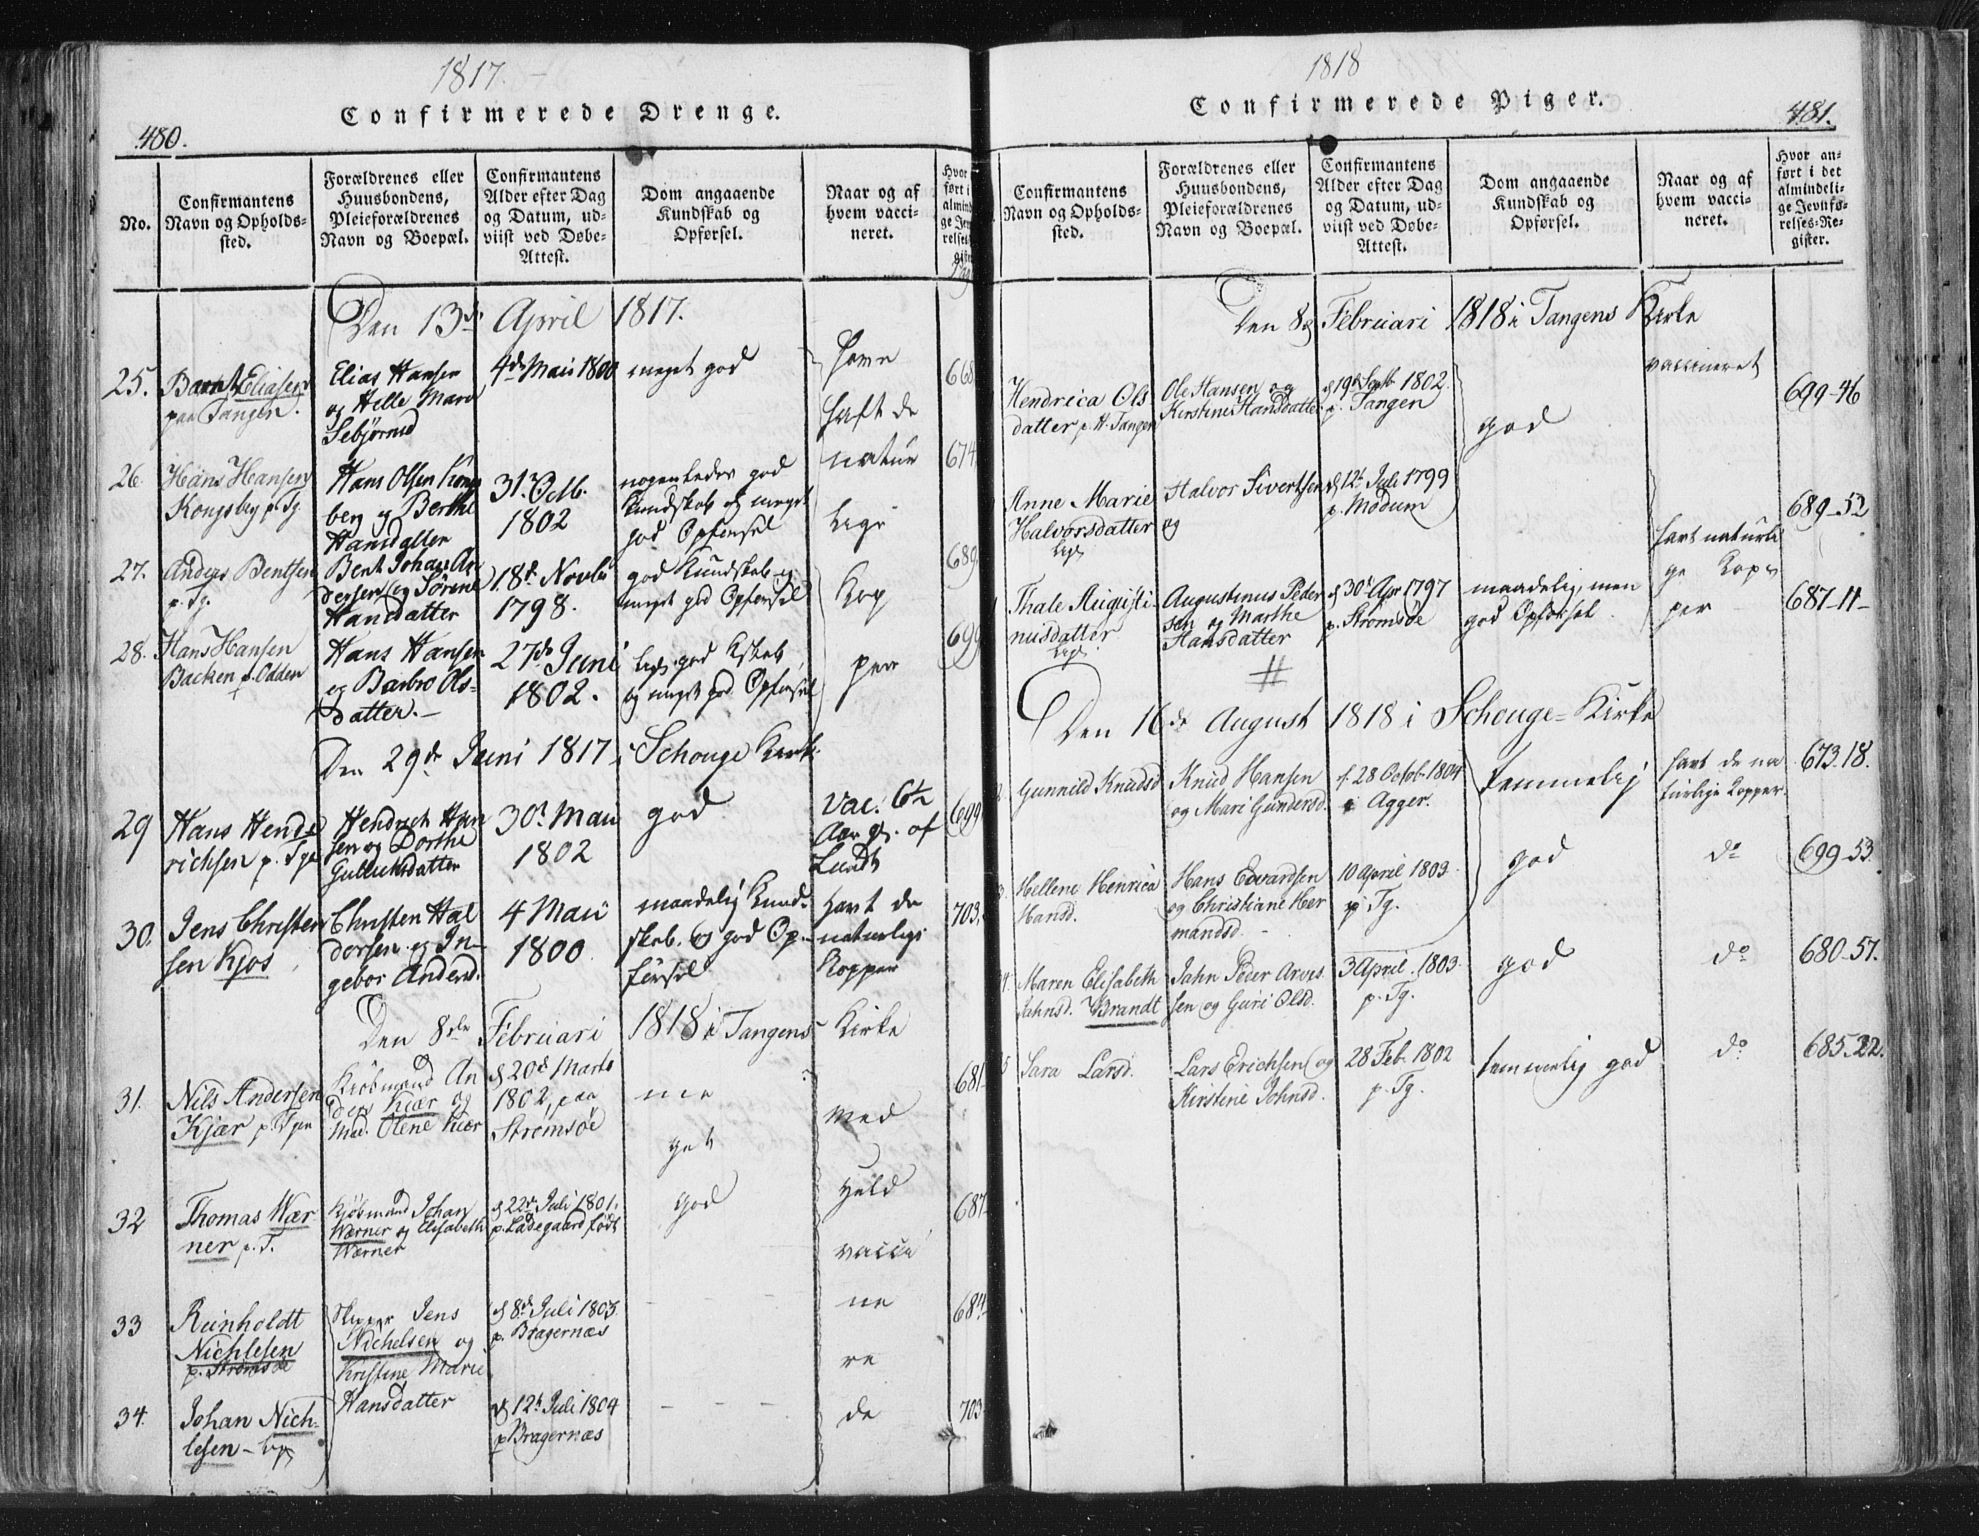 1817.
Confirmerede Drenge.
480.
No.
Confirmantens
Navn og Opholds-
sted.
Forældrenes eller
Huusbondens,
Pleieforældrenes
Navn og Boepæl.
Confirmantens
Alder efter Dag
og Datum, ud-
viist ved Døbe-
Attest.
Dom angaaende
Kundskab og
Opførsel.
Naar og af
hvem vacci-
neret.
Den 13de April 1817.
25.
Barnt Eliasen
paa Tangen.
Elias Hansen
og Helle Marie
4de Maii 1800
meget god
668
26.
Hans Hansen
Kongsberg p. Tg.
Hans Olsen Kongs
berg og Berthe
Hansdatter
31. Octb.
1802
nogenledes god
Kundskab og meget
god Opførsel
674
27.
Anders Bentsen
p. Tg.
Bent Johan An
dersen og Sørene
Hansdatter
18de Novbr
1798.
god Kundskab og
meget god Opførsel
689
28.
Hans Hansen
Backen p. Odden
Hans Hansen
og Barbro Ols-
datter.
27de Juni
1802.
lige god Kskab
og meget god Opførsel
699
have
haft de
natur
lige
Kop
per
Den 29de Juni 1817 i Schouge Kirke
29
Hans Hend-
richsen p. Tgn
Hendrich Han
sen og Dorthe
Gulliksdatter
30. Maii
1802
god
Vac. 6te
Aar gl. af
Lundt
699
30.
Jens Christen
sen Kjos
Christen Hal
dorsen og In-
gebor Andersd.
4 Maii
1800
maadelig Kund-
skab og god Op-
førsel
havt de
naturlige
Kopper
703
Den 8de Februari 1818 i Tangens Kirke
31.
Nils Andersen
Kjær p. Tgn
Kjøbmand An
ders Kiær og
Mad. Olene Kiær
d 20de Marts
1802, paa
Strømsøe
681
32
Thomas Wær-
ner p. T.
Kjøbmand Johan
Wærner og Elisabeth
Wærner
d 22de Juli 1801.
p. Ladegaard født
687
33
Reinholdt
Nichlesen
p. Strømsøe
Skipper Jens
Nichelsen og
Kristine Marie
Hansdatter
d 8de Juli 1803.
p. Bragernæs
684
34.
Johan Nich-
lesen - lige
d 12te Juli 1804
p Bragernæs
703
me
get
god
Med
Held
vacci
ne
re
de
1818
Confirmerede Piger.
481.
Confirmantens
Navn og Opholds-
sted.
Forældrenes eller
Huusbondens,
Pleieforældrenes
Navn og Boepæl.
Confirmantens
Alder efter Dag
og Datum, ud-
viist ved Døbe-
Attest.
Dom angaaende
Kundskab og
Opførsel.
Naar og af
hvem vacci-
neret.
Hvor an-
ført i det
almindeli-
ge Jevnfø-
relses-Re-
gister.
Den 8de Februari 1818 i Tangens Kirke
Hendrica Ols
datter p. H. Tangen
Ole Hansen og
Kirstine Hansdatter
d 19de Septb 1802.
p. Tangen
god
vaccineret
699-46
Anne Marie
Halvorsdatter
lige
Halvor Sivertsen
og
d 12te Juli 1799
p. Modum
689-52
Thale Augusti-
nusdatter
lige
Augustinus Peder
sen og Marthe
Hansdatter
d 30te Apr 1797
p. Strømsøe
maadelig, men
god Opførsel.
havt naturli
ge Kop-
per
687-11-
Den 16de August 1818 i Schouge-Kirke
Gunnild Knudsd
Knud Hansen
og Mari Gundersd.
f. 28 Octob. 1804
i Agger.
temmelig
havt de na
turlige Kopper.
673.18.
Hellene Henrica
Hansd.
Hans Edvardsen
og Christiane Her
mandsd.
10 April 1803.
p Tg.
god
do
699-53.
Maren Elisabeth
Jahnsd. Brandt
Jahn Peder Arves
sen og Guri Olsd.
3 April. 1803.
p. Tg.
god
do
680-57.
Sara Larsd.
Lars Erichsen og
Kirstine Johnsd.
28 Feb. 1802
p. Tg.
temmelig god
do
685.22.